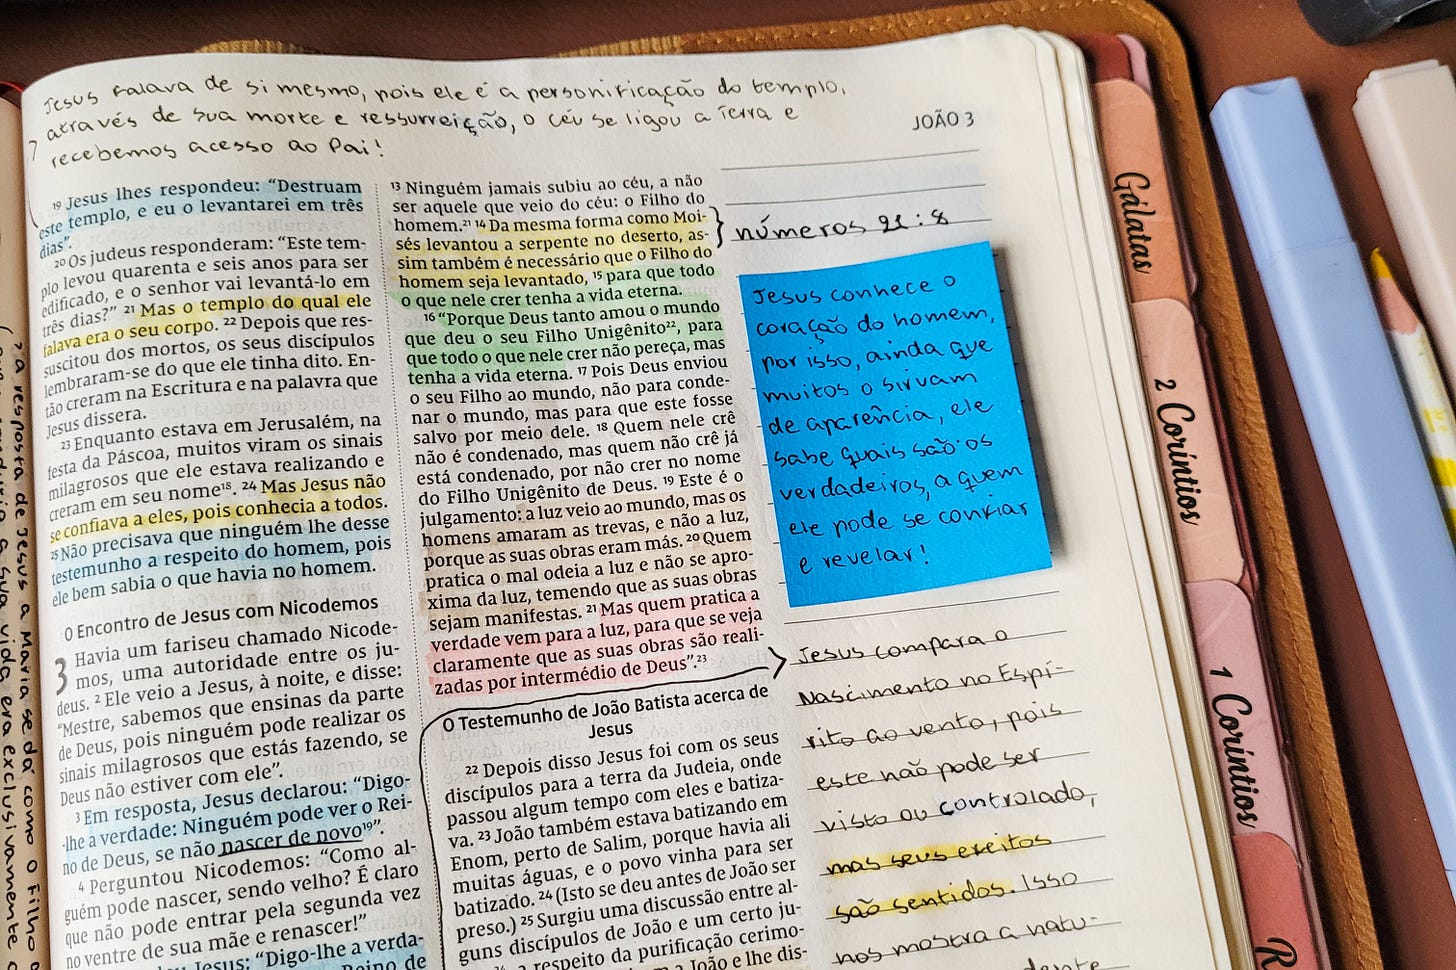 Jesus falava de si mesmo, pois ele é a personificação do templo,
através de sua morte e ressurreição, o céu se ligou a Terra e
recebemos acesso ao Pai!
JOÃO 3
19 Jesus lhes respondeu: “Destruam
este templo, e eu o levantarei em três
dias”.
20 Os judeus responderam: “Este tem-
plo levou quarenta e seis anos para ser
edificado, e o senhor vai levantá-lo em
três dias?” 21 Mas o templo do qual ele
falava era o seu corpo. 22 Depois que res-
suscitou dos mortos, os seus discípulos
lembraram-se do que ele tinha dito. En-
tão creram na Escritura e na palavra que
Jesus dissera.
23 Enquanto estava em Jerusalém, na
festa da Páscoa, muitos viram os sinais
milagrosos que ele estava realizando e
creram em seu nome18. 24 Mas Jesus não
se confiava a eles, pois conhecia a todos.
25 Não precisava que ninguém lhe desse
testemunho a respeito do homem, pois
ele bem sabia o que havia no homem.
O Encontro de Jesus com Nicodemos
3 Havia um fariseu chamado Nicode-
mos, uma autoridade entre os ju-
deus. 2 Ele veio a Jesus, à noite, e disse:
“Mestre, sabemos que ensinas da parte
de Deus, pois ninguém pode realizar os
sinais milagrosos que estás fazendo, se
Deus não estiver com ele”.
3 Em resposta, Jesus declarou: “Digo-
-lhe a verdade: Ninguém pode ver o Rei-
no de Deus, se não nascer de novo19”.
4 Perguntou Nicodemos: “Como al-
guém pode nascer, sendo velho? É claro
que não pode entrar pela segunda vez
no ventre de sua mãe e renascer!”
Jesus: “Digo-lhe a verda-
Reino de
13 Ninguém jamais subiu ao céu, a não
ser aquele que veio do céu: o Filho do
homem.21 14 Da mesma forma como Moi-
sés levantou a serpente no deserto, as-
sim também é necessário que o Filho do
homem seja levantado, 15 para que todo
o que nele crer tenha a vida eterna.
16 “Porque Deus tanto amou o mundo
que deu o seu Filho Unigênito22, para
que todo o que nele crer não pereça, mas
tenha a vida eterna. 17 Pois Deus enviou
o seu Filho ao mundo, não para conde-
nar o mundo, mas para que este fosse
salvo por meio dele. 18 Quem nele crê
não é condenado, mas quem não crê já
está condenado, por não crer no nome
do Filho Unigênito de Deus. 19 Este é o
julgamento: a luz veio ao mundo, mas os
homens amaram as trevas, e não a luz,
porque as suas obras eram más. 20 Quem
pratica o mal odeia a luz e não se apro-
xima da luz, temendo que as suas obras
sejam manifestas. 21 Mas quem pratica a
verdade vem para a luz, para que se veja
claramente que as suas obras são reali-
zadas por intermédio de Deus”.23
O Testemunho de João Batista acerca de
Jesus
22 Depois disso Jesus foi com os seus
discípulos para a terra da Judeia, onde
passou algum tempo com eles e batiza-
va. 23 João também estava batizando em
Enom, perto de Salim, porque havia ali
muitas águas, e o povo vinha para ser
batizado. 24 (Isto se deu antes de João ser
preso.) 25 Surgiu uma discussão entre al-
guns discípulos de João e um certo ju-
a respeito da purificação cerimo-
a João e lhe dis-
números 21:8
Jesus conhece o
coração do homem,
por isso, ainda que
muitos o sirvam
de aparência, ele
sabe quais são os
verdadeiros, a quem
ele pode se confiar
e revelar!
Jesus compara o
Nascimento no Espí-
rito ao vento, pois
este não pode ser
visto ou controlado,
mas seus efeitos
são sentidos. Isso
nos mostra a natu-
Gálatas
2 Coríntios
1 Coríntios
R
a resposta de Jesus a Maria se dá como o Filho
a sua vida era exclusivamente